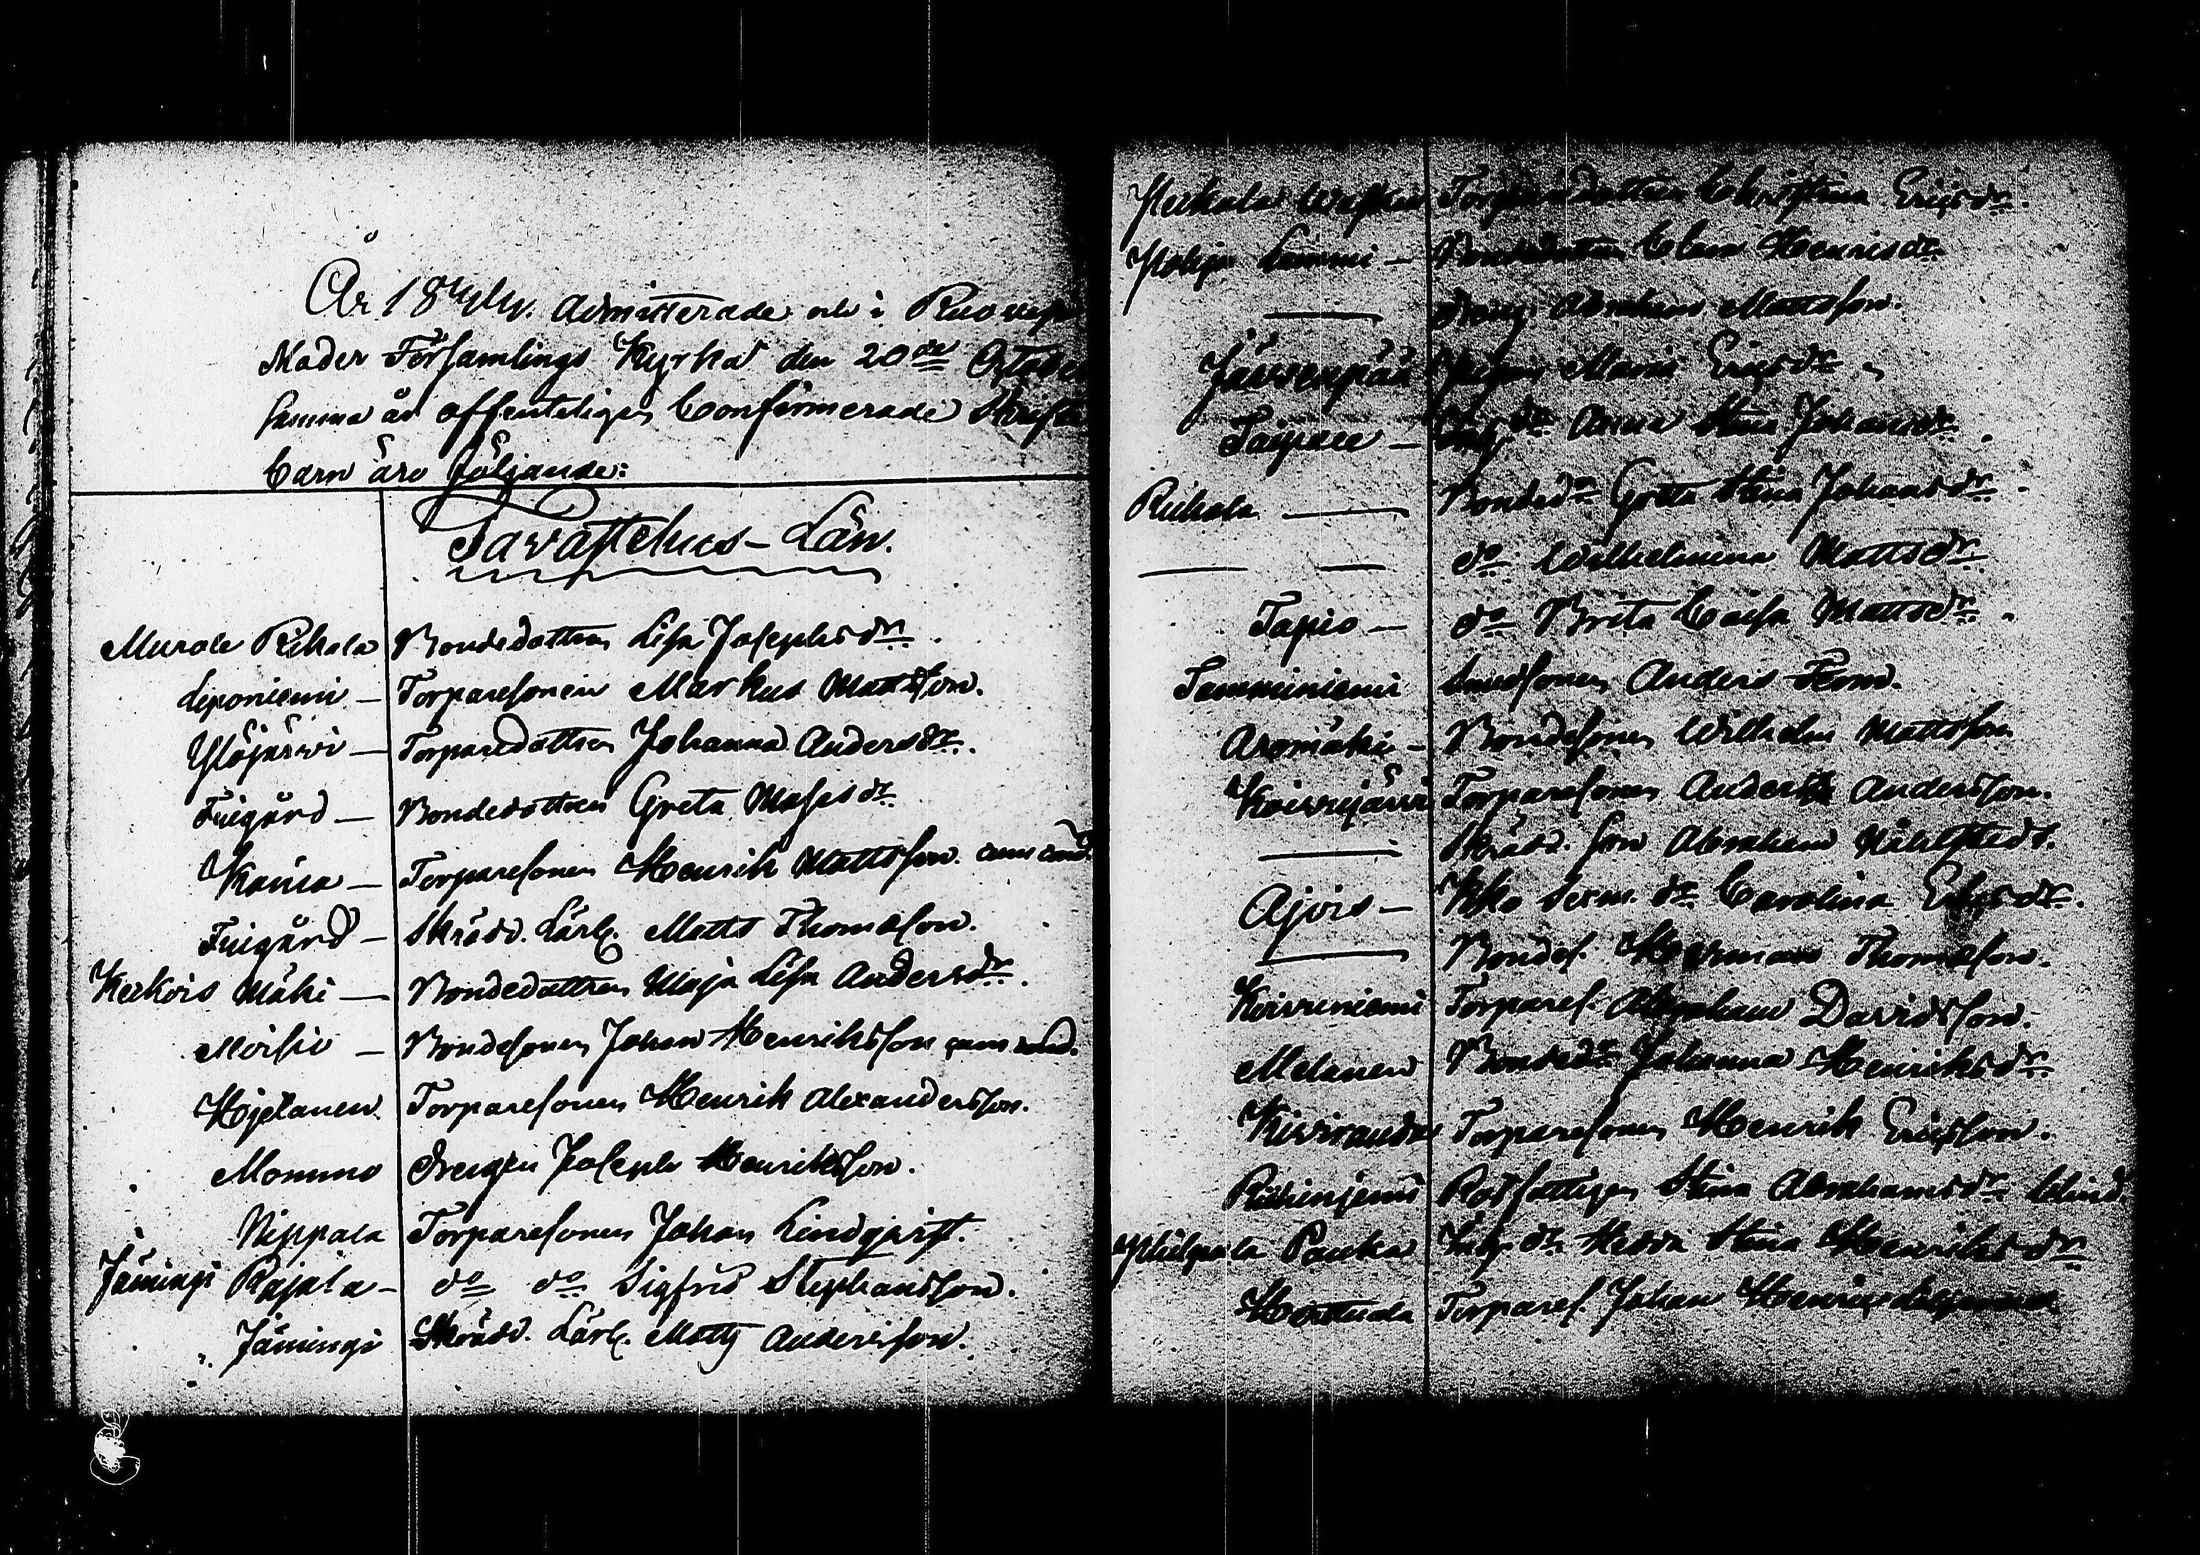 År 1844. Admitterade och i Ruovesi
Moder Församlings Kyrka den 20de October
samma år offenteligen Confirmerade Skrifte
Barn äro följande:
Tavastehus-Län.
Murole Pihala Bondedottren Lisa Josephsdr.
Leponiemi — Torparesonen Markus Mattsson.
Ylöjärvi — Torparedottren Johanna Andersdr.
— Bondedottren Greta Matsdr
— Torparesonen Henrik Mattsson.
— Skrädd. Lärl. Matts Thomasson.
Kekois Mäki — Bondedottren Maja Lisa Andersdr.
Moisio — Bondesonen Johan Henriksson
Hjelanen Torparesonen Henrik Alexandersson.
Mommo Drengen Joseph Henriksson.
Nippala Torparesonen Johan Lindqvist.
Jäminge Rajala — do do Sigfrid Stephansson.
" Jäminge Skrädd. Lärl. Matts Andersson.
Torparedottren Christina Ericsdr.
Pohja Lammi — Bondedottren Henricsdr
— Dreng Abraham Mattsson.
Järvenpää Pigan Maria Ericsdr
Taipale — Anna Stina Johansdr.
Pihala — Bondedr Greta Stina Johansdr.
— — do Wilhelmina Mattsdr.
Tapio — do Brita Caisa Mattsdr.
Tammniemi Smedsonen Anders Ferm.
Aromäki — Bondesonen Wilhelm Mattsson
Koivujärvi Torparesonen Anders Andersson.
— Skrädd. Son Abraham Wåhlstedt.
Ajois — Carolina Ericsdr.
— Bondes. Herman Thomasson.
Koivuniemi Torpares. Abraham Davidsson.
Melanen Bondedr Johanna Henriksdr.
Kiviranda Torparesonen Henrik Ericsson.
Stina Abrahamsdr blind.
Pauka Inh. dr Hedda Stina Henriksdr
Honttula Torpares. Johan Henric